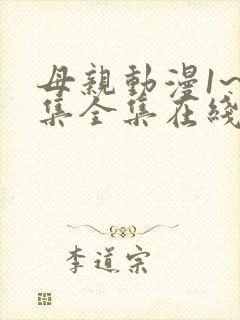 母親動漫1~
集全集在綫
李道宗